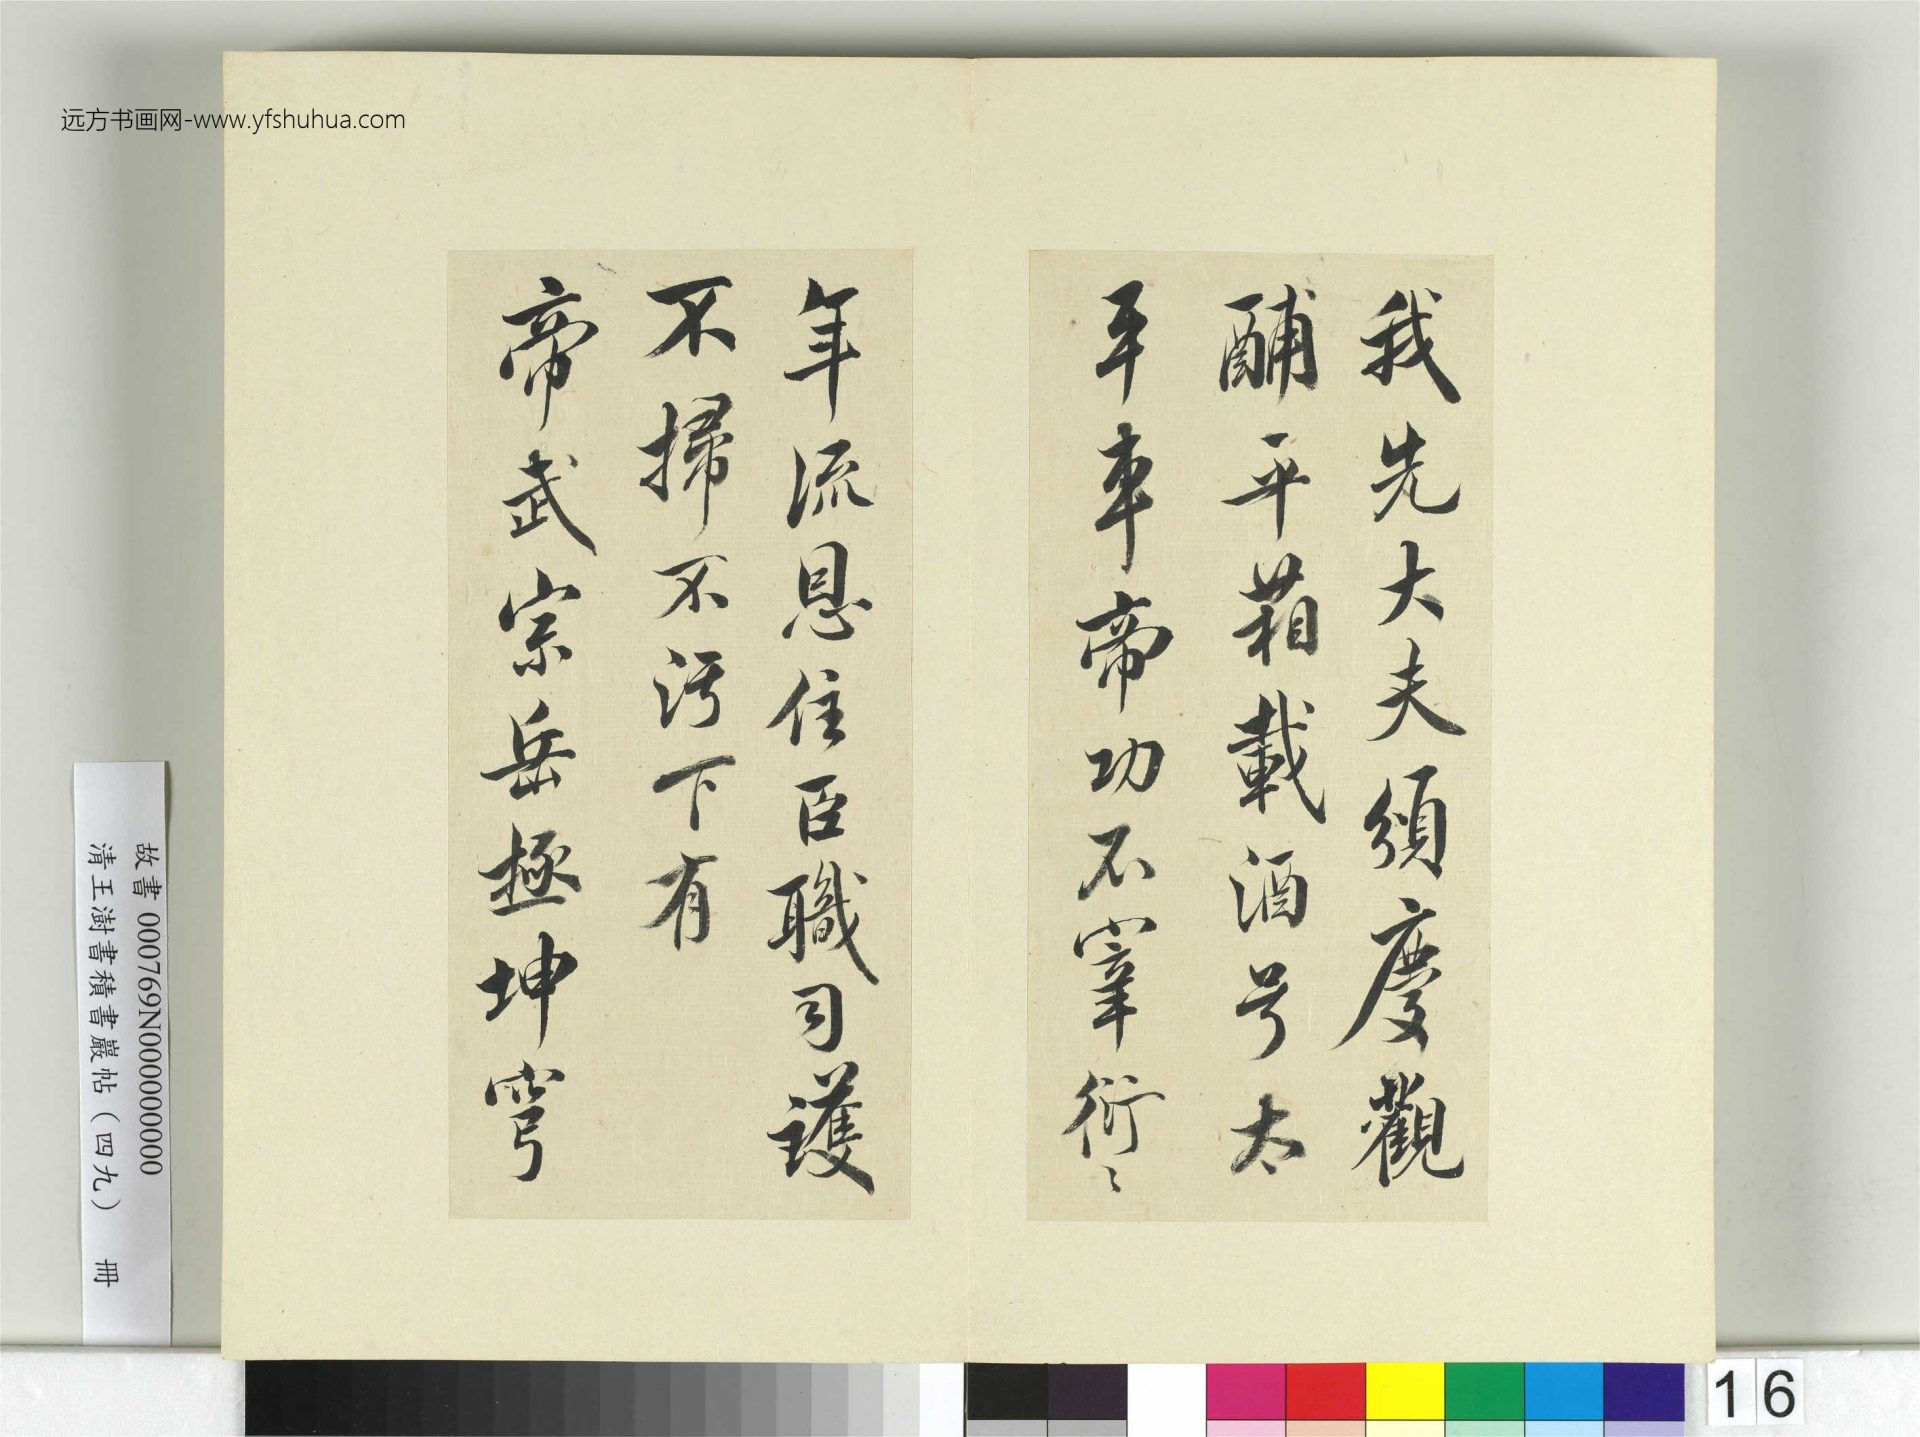 远方书画网-www.yfshuhua.com
我先大夫須慶觀
酺平葙載酒号太
平車帝功不宰衍〻
年流恩住臣職司護
不掃不污下有
帝武宗岳極坤穹
故書 000769N000000000
清王澍書積書巖帖（四九） 冊
16